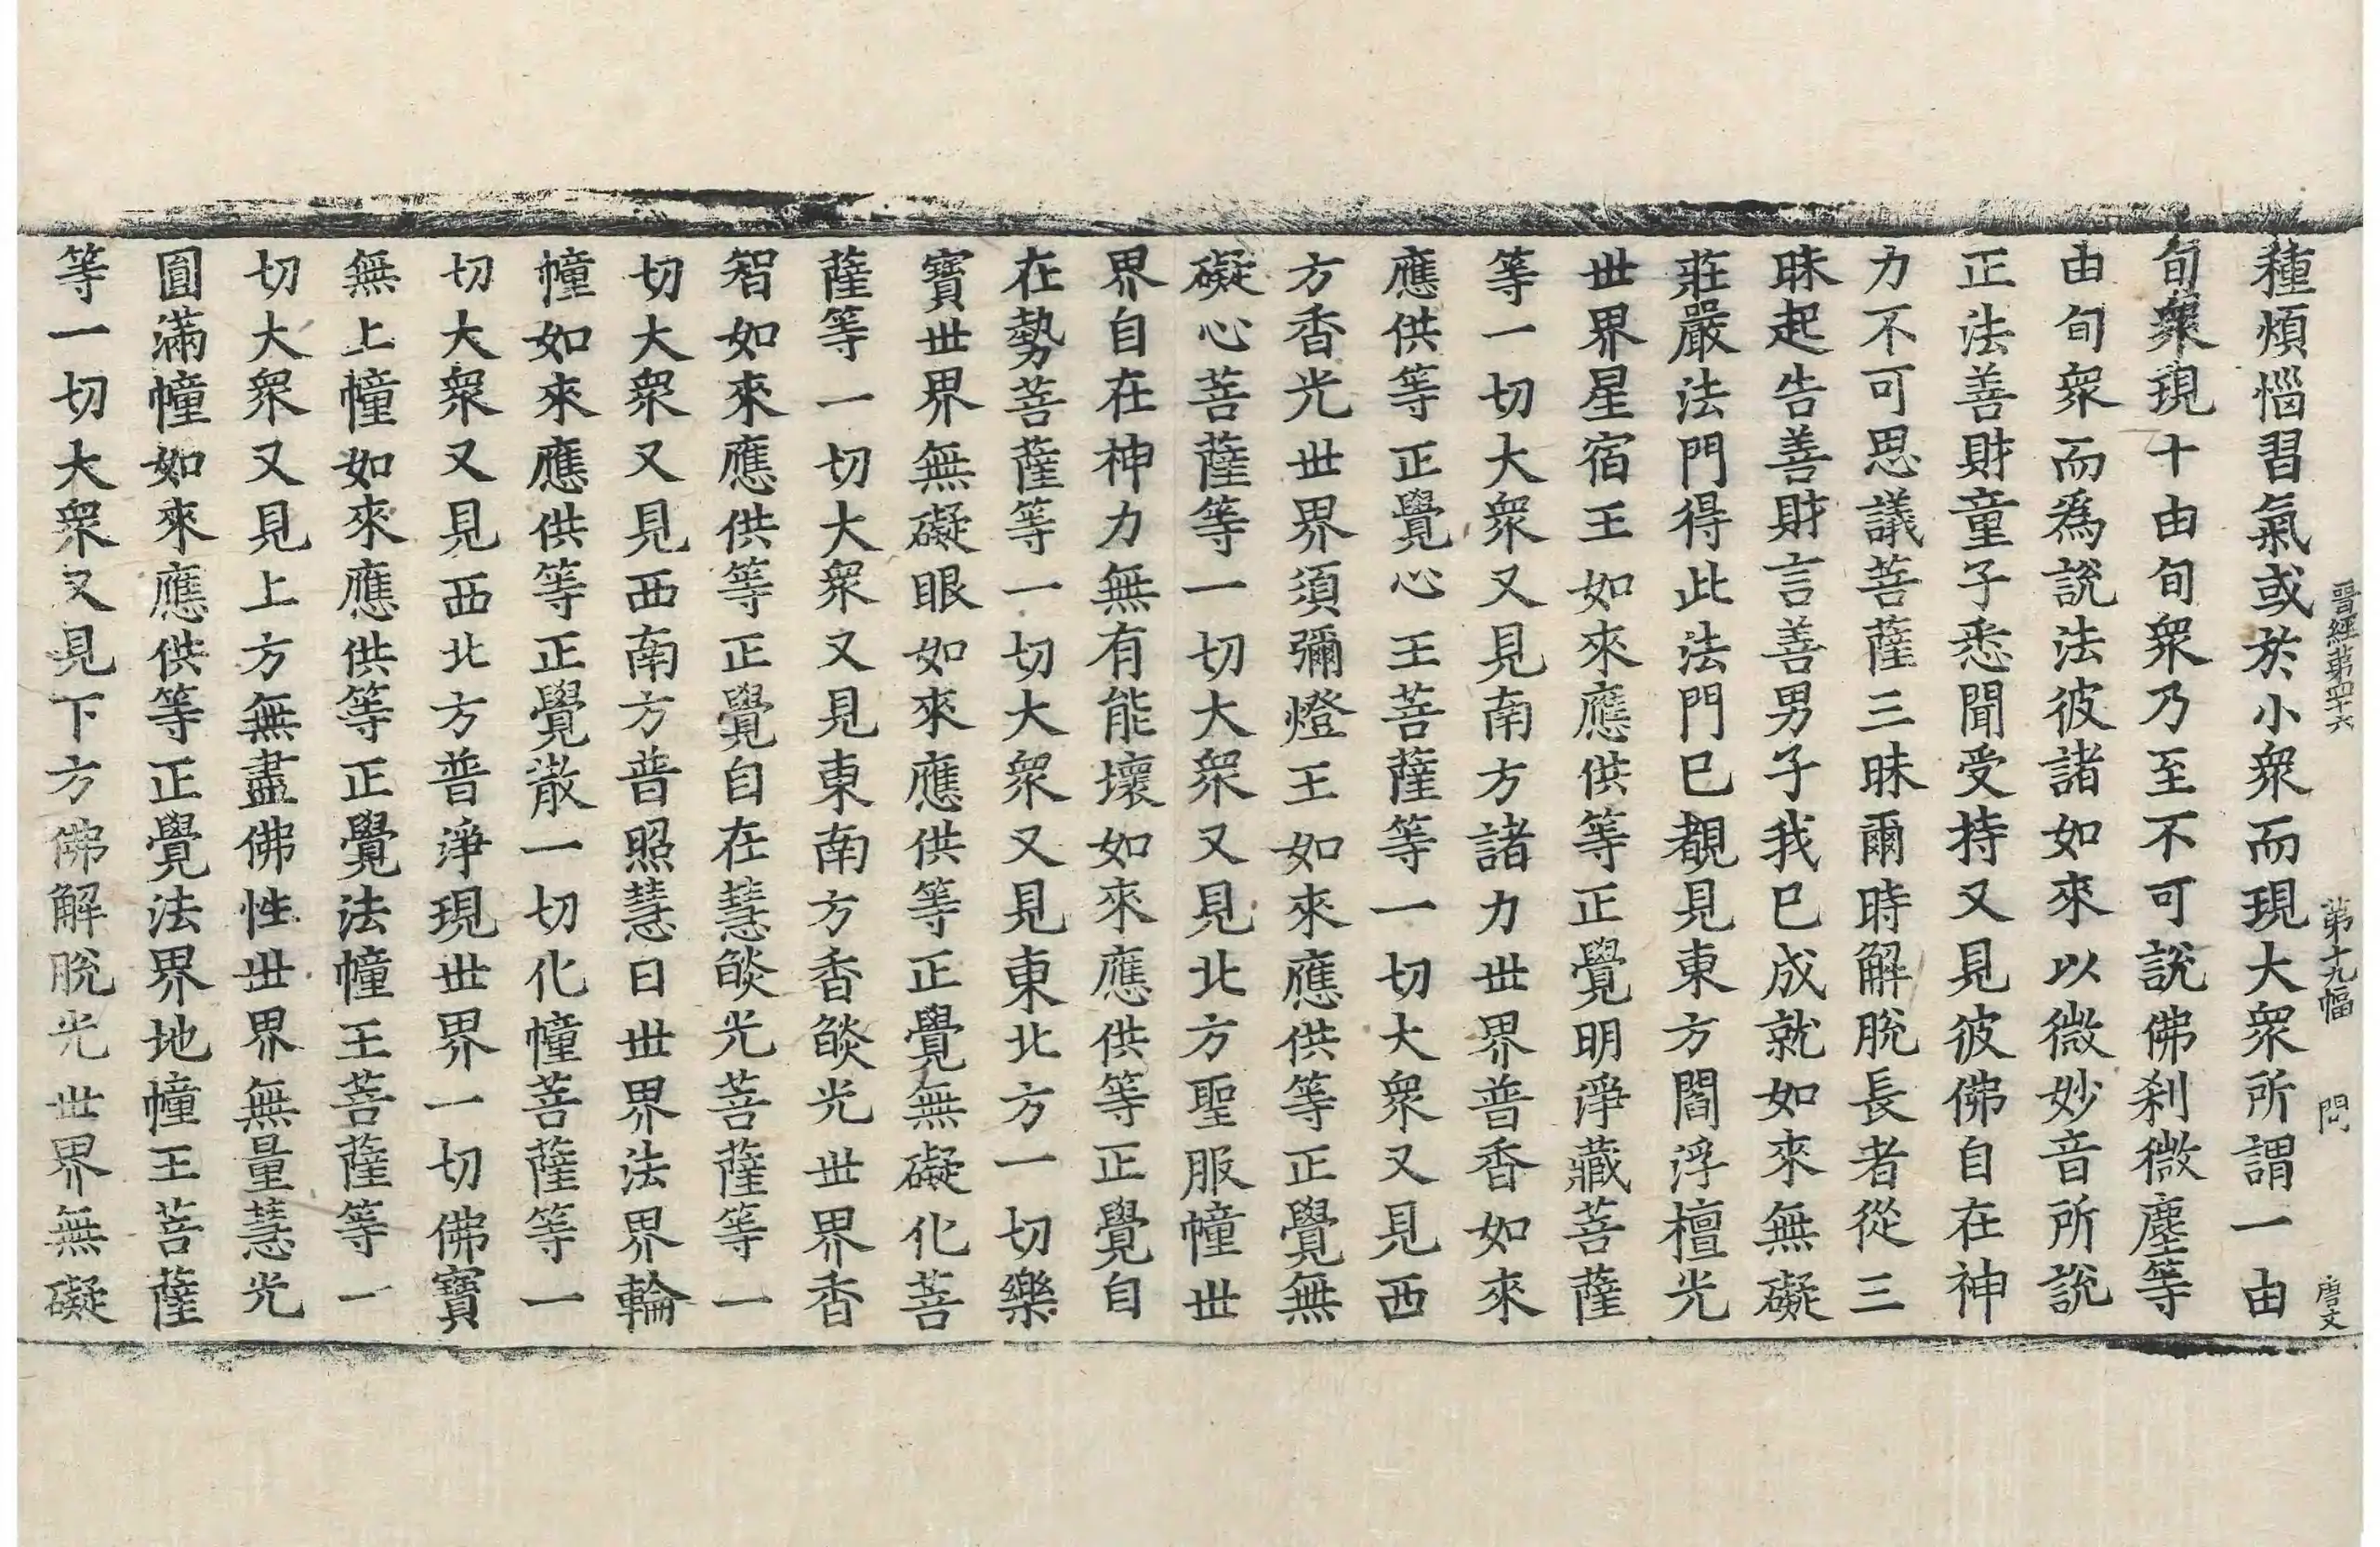 晉經第四十六　第十九幅　問　唐文
種煩惱習氣或於小衆而現大衆所謂一由
旬衆現十由旬衆乃至不可說佛刹微塵等
由旬衆而爲說法彼諸如來以微妙音所說
正法善財童子悉聞受持又見彼佛自在神
力不可思議菩薩三昧爾時解脫長者從三
昧起告善財言善男子我已成就如來無礙
莊嚴法門得此法門已覩見東方閻浮檀光
世界星宿王如來應供等正覺明淨藏菩薩
等一切大衆又見南方諸力世界普香如來
應供等正覺心王菩薩等一切大衆又見西
方香光世界須彌燈王如來應供等正覺無
礙心菩薩等一切大衆又見北方聖服幢世
界自在神力無有能壞如來應供等正覺自
在勢菩薩等一切大衆又見東北方一切樂
寶世界無礙眼如來應供等正覺無礙化菩
薩等一切大衆又見東南方香焰光世界香
智如來應供等正覺自在慧焰光菩薩等一
切大衆又見西南方普照慧日世界法界輪
幢如來應供等正覺散一切化幢菩薩等一
切大衆又見西北方普淨現世界一切佛寶
無上幢如來應供等正覺法幢王菩薩等一
切大衆又見上方無盡佛性世界無量慧光
圓滿幢如來應供等正覺法界地幢王菩薩
等一切大衆又見下方佛解脫光世界無礙